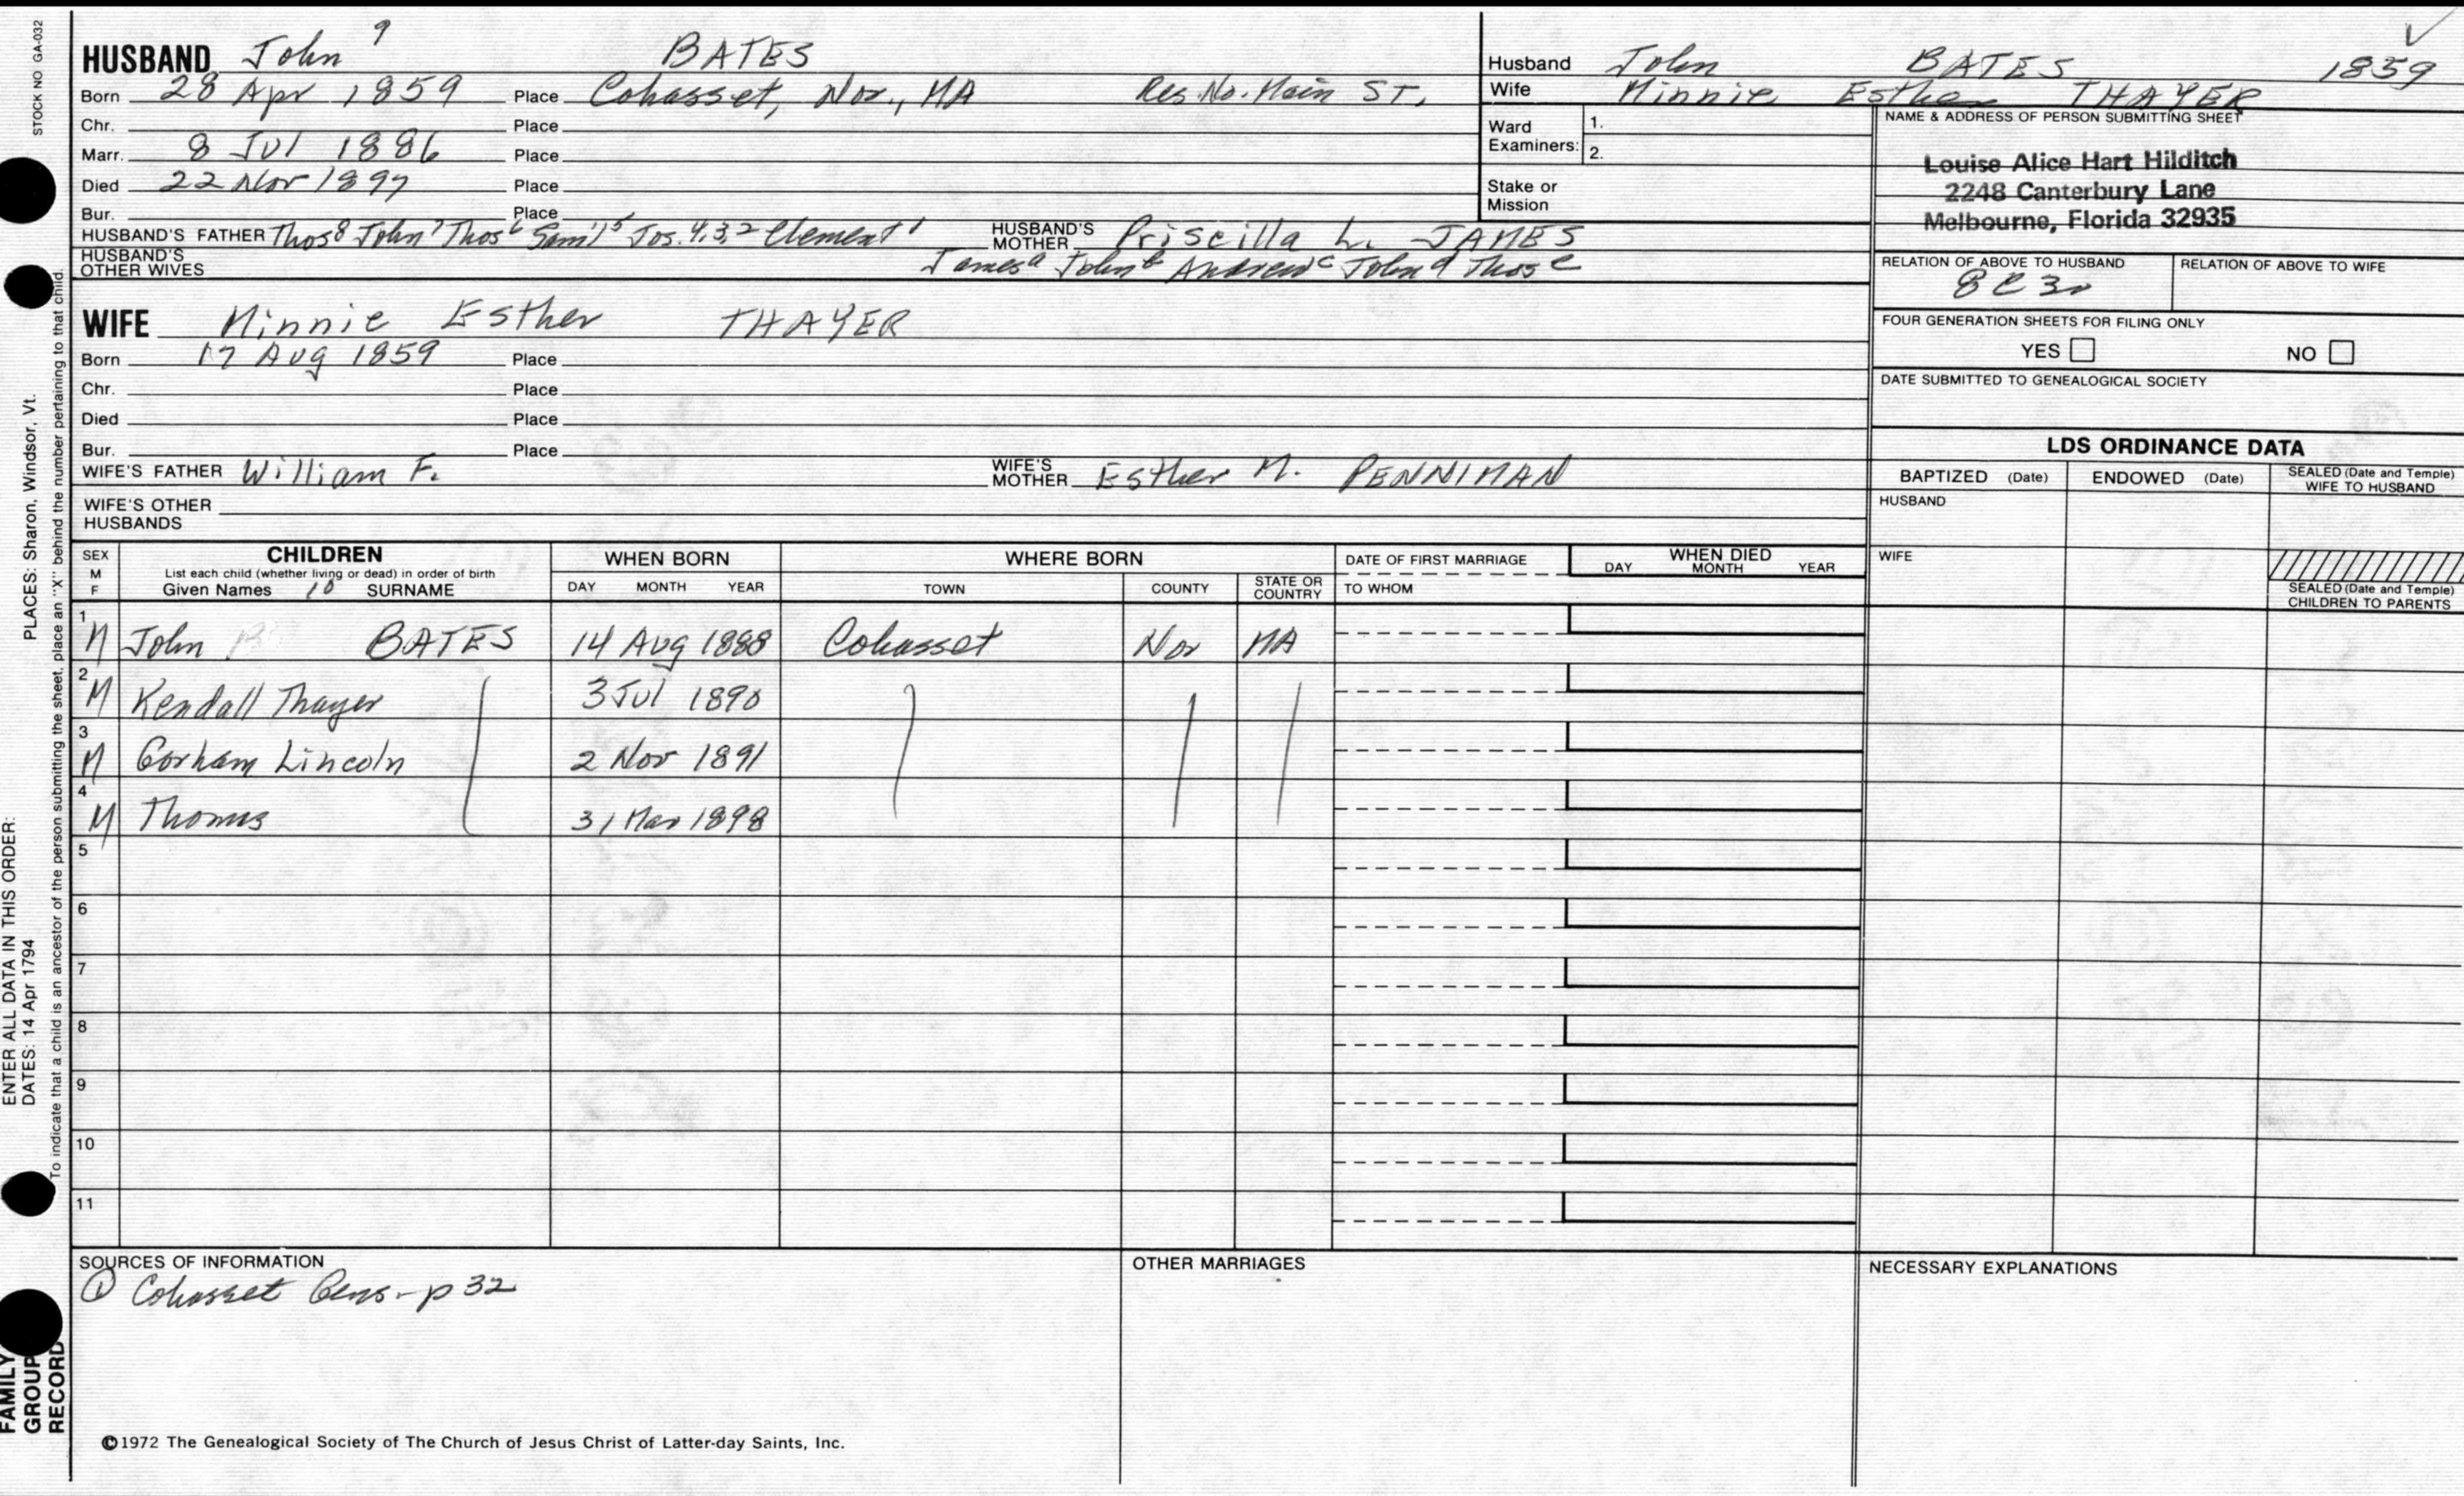 STOCK NO GA-032
HUSBAND John 9 BATES
Born 28 Apr 1859 Place Cohasset, Nor., MA Res. No. Main ST.
Chr. Place
Marr. 8 Jul 1886 Place
Died 22 Nov 1897 Place
Bur. Place
HUSBAND'S FATHER Thos8 John7 Thos6 Saml5 Jos.4,3,2 Clement1 HUSBAND'S MOTHER Priscilla L. JAMES
HUSBAND'S OTHER WIVES Jamesa Johnb Andrewc Johnd Those
Husband John BATES 1859
Wife Minnie Esther THAYER
Ward Examiners: 1.
2.
Stake or Mission
NAME & ADDRESS OF PERSON SUBMITTING SHEET
Louise Alice Hart Hilditch
2248 Canterbury Lane
Melbourne, Florida 32935
RELATION OF ABOVE TO HUSBAND RELATION OF ABOVE TO WIFE
8C3r
FOUR GENERATION SHEETS FOR FILING ONLY
YES NO
DATE SUBMITTED TO GENEALOGICAL SOCIETY
WIFE Minnie Esther THAYER
Born 17 Aug 1859 Place
Chr. Place
Died Place
Bur. Place
WIFE'S FATHER William F. WIFE'S MOTHER Esther M. PENNIMAN
WIFE'S OTHER HUSBANDS
LDS ORDINANCE DATA
BAPTIZED (Date) ENDOWED (Date) SEALED (Date and Temple) WIFE TO HUSBAND
HUSBAND
WIFE
SEALED (Date and Temple) CHILDREN TO PARENTS
SEX M F CHILDREN WHEN BORN WHERE BORN DATE OF FIRST MARRIAGE WHEN DIED
List each child (whether living or dead) in order of birth
Given Names 10 SURNAME DAY MONTH YEAR TOWN COUNTY STATE OR COUNTRY TO WHOM DAY MONTH YEAR
1 M John BATES 14 Aug 1888 Cohasset Nor MA
2 M Kendall Thayer 3 Jul 1890
3 M Gorham Lincoln 2 Nov 1891
4 M Thomas 31 Mar 1898
5
6
7
8
9
10
11
SOURCES OF INFORMATION
① Cohasset Gens - p 32
OTHER MARRIAGES
NECESSARY EXPLANATIONS
©1972 The Genealogical Society of The Church of Jesus Christ of Latter-day Saints, Inc.
FAMILY GROUP RECORD
ENTER ALL DATA IN THIS ORDER:
DATES: 14 Apr 1794 PLACES: Sharon, Windsor, Vt.
To indicate that a child is an ancestor of the person submitting the sheet, place an "X" behind the number pertaining to that child.